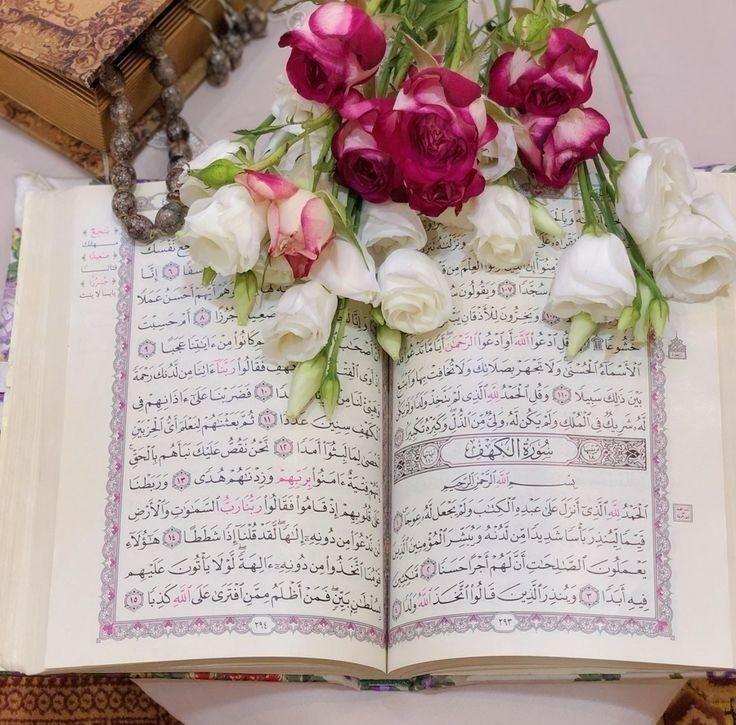 وَنَزَّلْنَٰهُ
ٱلْعِلْمَ مِن
سُجَّدًا ١٠٧ وَيَقُولُونَ
وَيَخِرُّونَ لِلْأَذْقَانِ
خُشُوعًا ۩ ٱدْعُوا۟ ٱللَّهَ أَوِ ٱدْعُوا۟ ٱلرَّحْمَٰنَ أَيًّا مَّا تَدْعُوا۟
ٱلْأَسْمَآءُ ٱلْحُسْنَىٰ وَلَا تَجْهَرْ بِصَلَاتِكَ وَلَا تُخَافِتْ بِهَا وَٱبْتَغِ
بَيْنَ ذَٰلِكَ سَبِيلًا ١١٠ وَقُلِ ٱلْحَمْدُ لِلَّهِ ٱلَّذِى لَمْ يَتَّخِذْ وَلَدًا وَلَمْ يَكُن
لَّهُۥ شَرِيكٌ فِى ٱلْمُلْكِ وَلَمْ يَكُن لَّهُۥ وَلِىٌّ مِّنَ ٱلذُّلِّ وَكَبِّرْهُ تَكْبِيرًۢا
سُورَةُ الكَهْفِ
بِسْمِ ٱللَّهِ ٱلرَّحْمَٰنِ ٱلرَّحِيمِ
ٱلْحَمْدُ لِلَّهِ ٱلَّذِىٓ أَنزَلَ عَلَىٰ عَبْدِهِ ٱلْكِتَٰبَ وَلَمْ يَجْعَل لَّهُۥ عِوَجَا
قَيِّمًا لِّيُنذِرَ بَأْسًا شَدِيدًا مِّن لَّدُنْهُ وَيُبَشِّرَ ٱلْمُؤْمِنِينَ ٱلَّذِينَ
يَعْمَلُونَ ٱلصَّٰلِحَٰتِ أَنَّ لَهُمْ أَجْرًا حَسَنًا ٢ مَّٰكِثِينَ
فِيهِ أَبَدًا ٣ وَيُنذِرَ ٱلَّذِينَ قَالُوا۟ ٱتَّخَذَ ٱللَّهُ وَلَدًا ٤
٢٩٣
بَٰخِعٌ
مهلك
صَعِيدًا
ترابا
جُرُزًا
يابسا لا ينبت
نَّفْسَكَ
٦ إِنَّا
أَيُّهُمْ أَحْسَنُ عَمَلًا
صَعِيدًا جُرُزًا ٨ أَمْ حَسِبْتَ
كَانُوا۟ مِنْ ءَايَٰتِنَا عَجَبًا ٩
إِذْ أَوَى ٱلْفِتْيَةُ فَقَالُوا۟ رَبَّنَآ ءَاتِنَا مِن لَّدُنكَ رَحْمَةً
وَهَيِّئْ لَنَا مِنْ ١٠ فَضَرَبْنَا عَلَىٰٓ ءَاذَانِهِمْ فِى
ٱلْكَهْفِ سِنِينَ عَدَدًا ١١ ثُمَّ بَعَثْنَٰهُمْ لِنَعْلَمَ أَىُّ ٱلْحِزْبَيْنِ
أَحْصَىٰ لِمَا لَبِثُوٓا۟ أَمَدًا ١٢ نَّحْنُ نَقُصُّ عَلَيْكَ نَبَأَهُم بِٱلْحَقِّ
إِنَّهُمْ فِتْيَةٌ ءَامَنُوا۟ بِرَبِّهِمْ وَزِدْنَٰهُمْ هُدًى ١٣ وَرَبَطْنَا
عَلَىٰ قُلُوبِهِمْ إِذْ قَامُوا۟ فَقَالُوا۟ رَبُّنَا رَبُّ ٱلسَّمَٰوَٰتِ وَٱلْأَرْضِ
لَن نَّدْعُوَا۟ مِن دُونِهِۦٓ إِلَٰهًا لَّقَدْ قُلْنَآ إِذًا شَطَطًا ١٤ هَٰٓؤُلَآءِ
قَوْمُنَا ٱتَّخَذُوا۟ مِن دُونِهِۦٓ ءَالِهَةً لَّوْلَا يَأْتُونَ عَلَيْهِم
بِسُلْطَٰنٍۭ بَيِّنٍ فَمَنْ أَظْلَمُ مِمَّنِ ٱفْتَرَىٰ عَلَى ٱللَّهِ كَذِبًا ١٥
٢٩٤